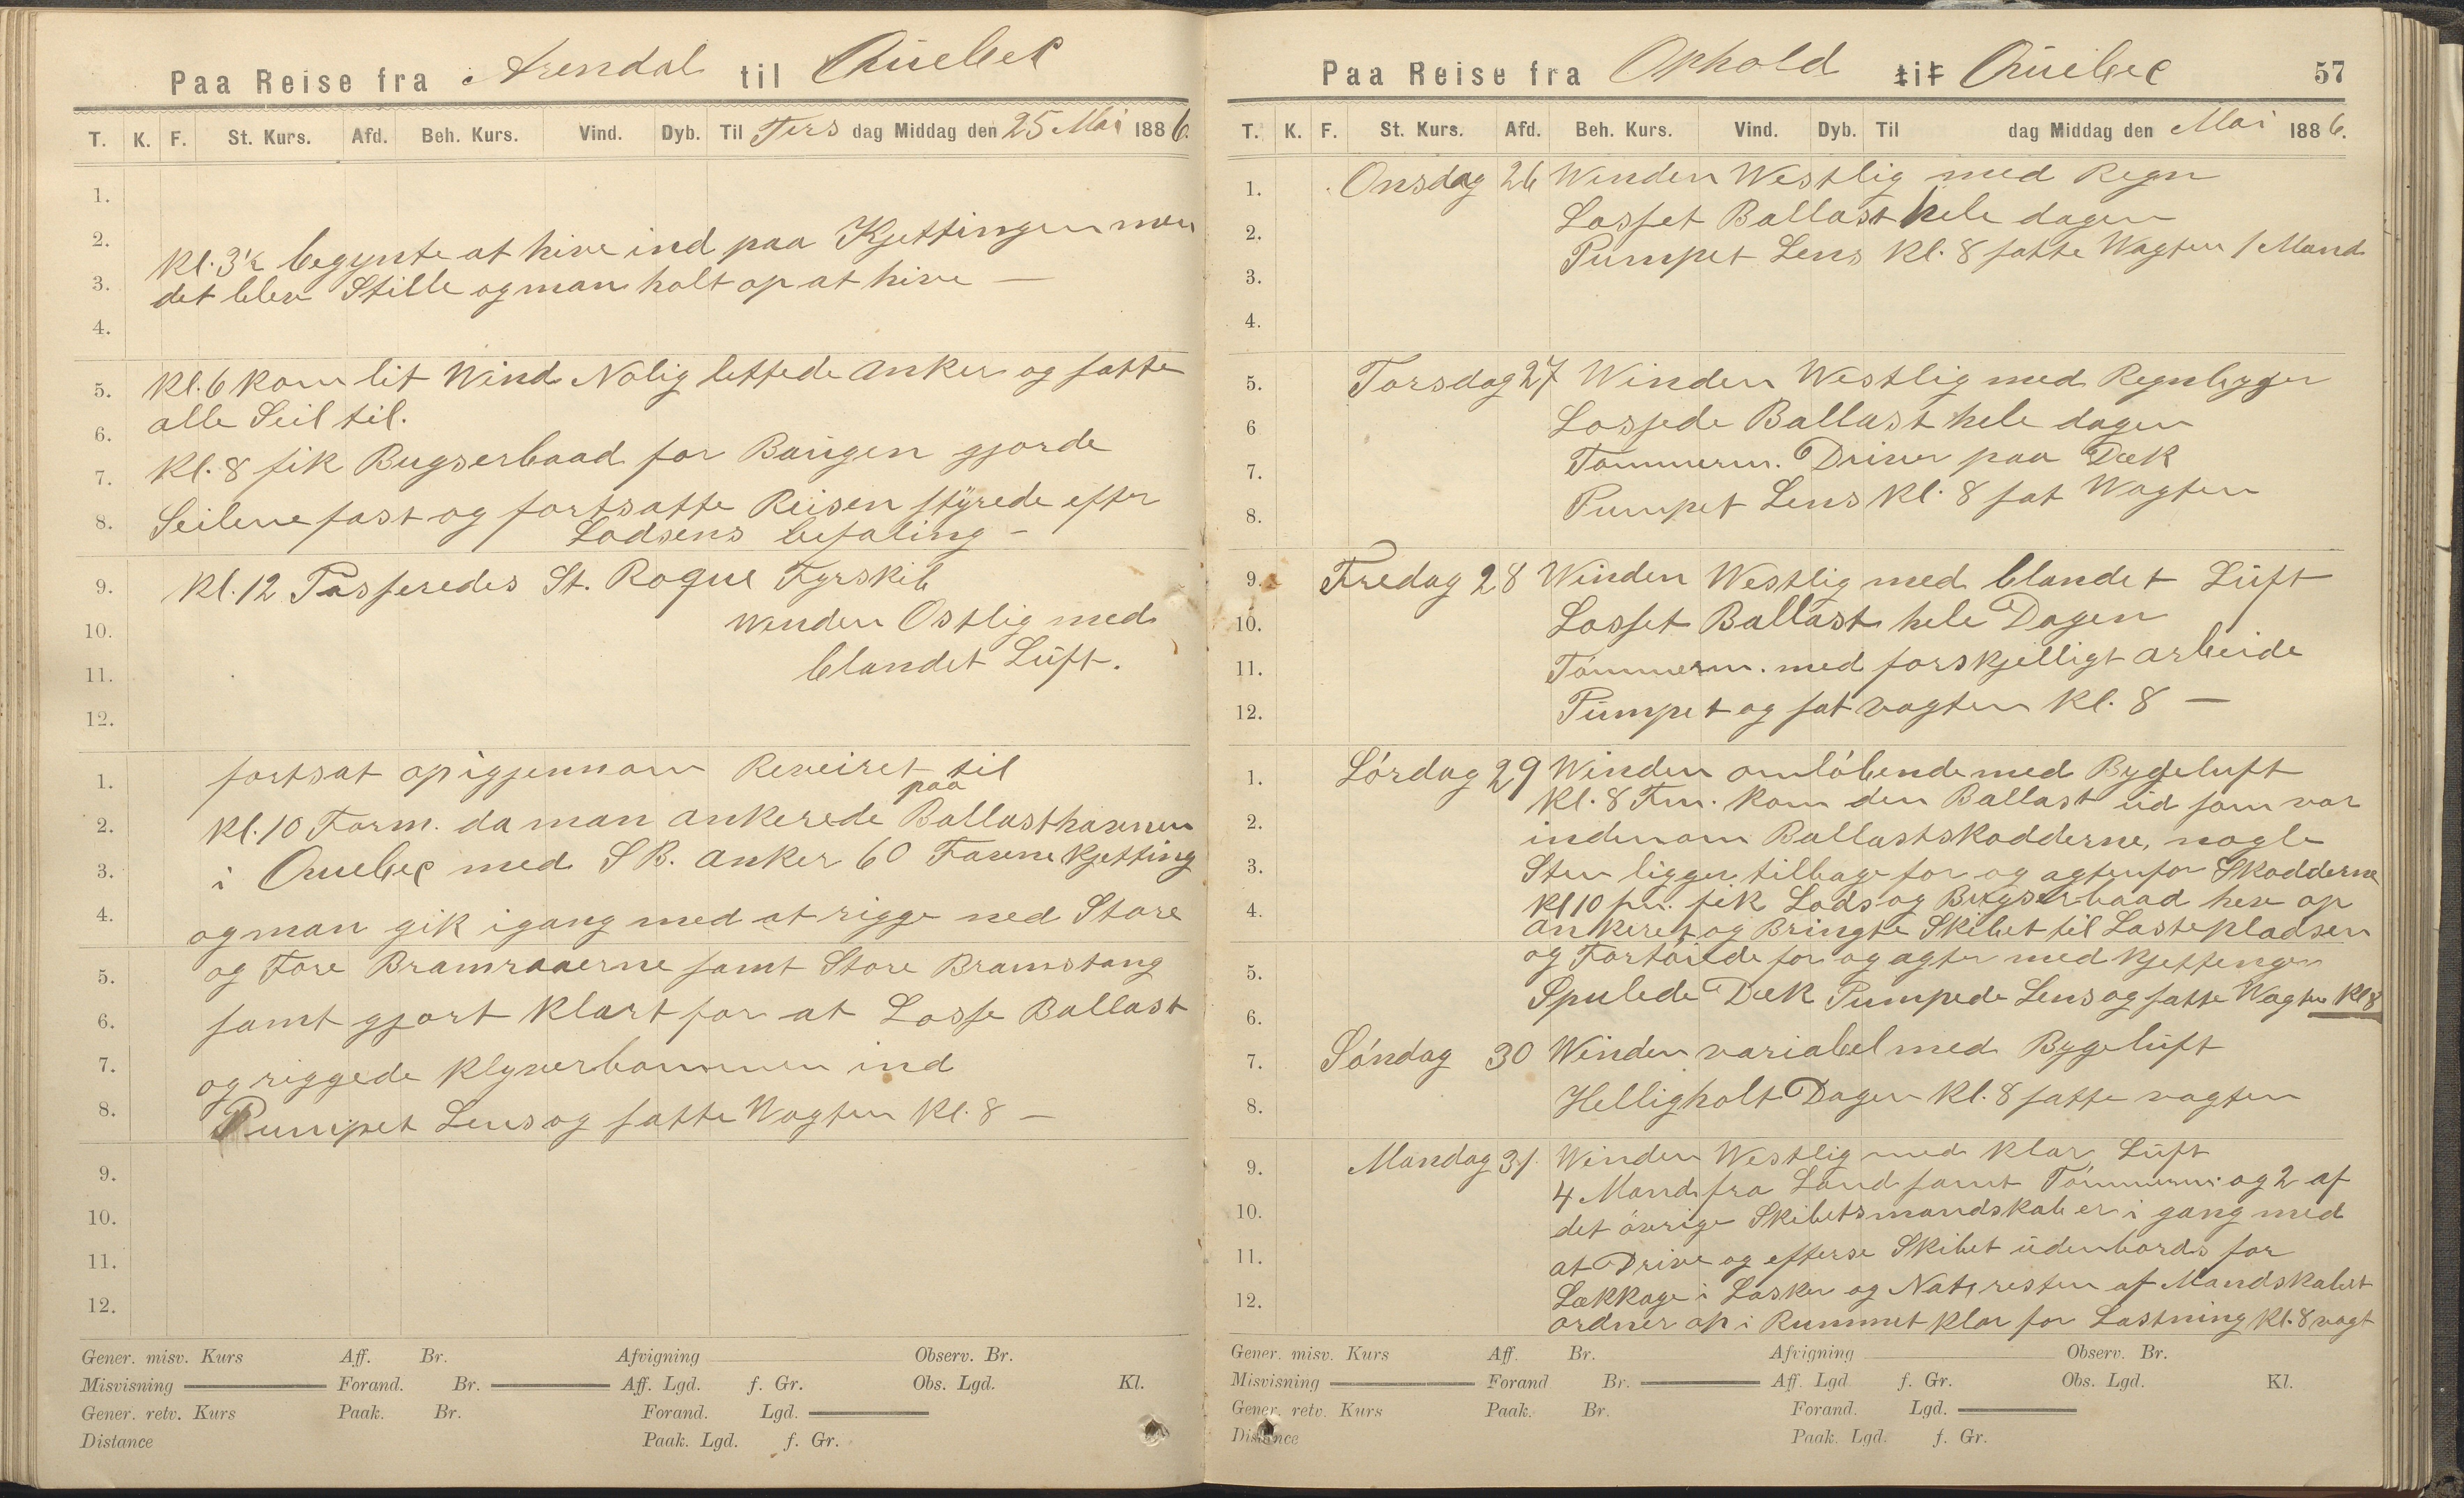 Paa Reise fra Arendal til Quebec
T. K. F. St. Kurs. Afd. Beh. Kurs. Vind. Dyb. Til Tirs dag Middag den 25 Mai 1886.
1.
2.
Kl. 3½ begynte at hive ind paa Kjettingen men
3.
det blev Stille og man holt op at hive —
4.
5. Kl. 6 kom lit Wind Nolig lettede Anker og satte
6. alle Seil til.
7. Kl. 8 fik Bugserbaad for Baugen gjorde
8. Seilene fast og fortsatte Reisen styrede efter
Lodsens befaling –
9. Kl. 12 Passeredes St. Roque Fyrskib
10. Winden Ostlig med
11. blandet Luft.
12.
1. fortsat op igjennom Reveiret til
paa
2. Kl. 10 Form. da man ankerede Ballasthavnen
3. i Quebec med SB. Anker 60 Favne Kjetting
4. og man gik igang med at rigge ned Store
5. og Fore Bramraaerne samt Store Bramstang
6. samt gjort klart for at Losse Ballast
7. og riggede Klyverbommen ind
8. Pumpet Lens og satte Wagten Kl. 8 —
9.
10.
11.
12.
Gener. misv. Kurs Aff. Br. Afvigning Observ. Br.
Misvisning Forand. Br. Aff. Lgd. f. Gr. Obs. Lgd. Kl.
Gener. retv. Kurs Paak. Br. Forand. Lgd.
Distance Paak. Lgd. f. Gr.
Paa Reise fra Ophold til Quebec 57
T. K. F. St. Kurs. Afd. Beh. Kurs. Vind. Dyb. Til dag Middag den Mai 1886.
1. Onsdag 26 Winden Westlig med Regn
2. Losset Ballast hele dagen
3. Pumpet Lens Kl. 8 satte Wagten 1 Mand
4.
5. Torsdag 27 Winden Westlig med Regnbyger
6 Lossede Ballast hele dagen
7. Tømmerm. Driver paa Dæk
8. Pumpet Lens Kl. 8 sat Wagten
9. Fredag 28 Winden Westlig med blandet Luft
10. Losset Ballast hele Dagen
11. Tömmerm. med forskjelligt arbeide
12. Pumpet og sat vagten Kl. 8 —
1. Lórdag 29 Winden omlóbende med Bygeluft
Kl. 8 Fm. kom den Ballast ud som var
2. indenom Ballastskodderne, nogle
3. Sten ligger tilbage for og agtenfor Skodderne
4. Kl 10 fm. fik Lods og Bugserbaad hev op
ankeret og Bringte Skibet til Lastepladsen
5. og Fortöiede for og agter med Kjettinger
6. Spulede Dæk Pumpede Lens og satte Wagten Kl 8
7. Sóndag 30 Winden variabel med Bygeluft
8. Helligholt Dagen Kl. 8 satte vagten
9. Mandag 31. Winden Westlig med klar Luft
4 Mand fra Land samt Tómmerm. og 2 af
10. det óvrige Skibetsmandskab er i gang med
11. at Drive og efterse Skibet udenbords for
12. Lækkage i Lasker og Nat, resten af Mandskabet
ordner op i Rummet klar for Lastning Kl. 8 vagt
Gener. misv. Kurs Aff. Br. Afvigning Observ. Br.
Misvisning Forand Br. Aff. Lgd f. Gr. Obs. Lgd. Kl.
Gener. retv. Kurs Paak. Br. Forand. Lgd.
Distance Paak. Lgd. f. Gr.